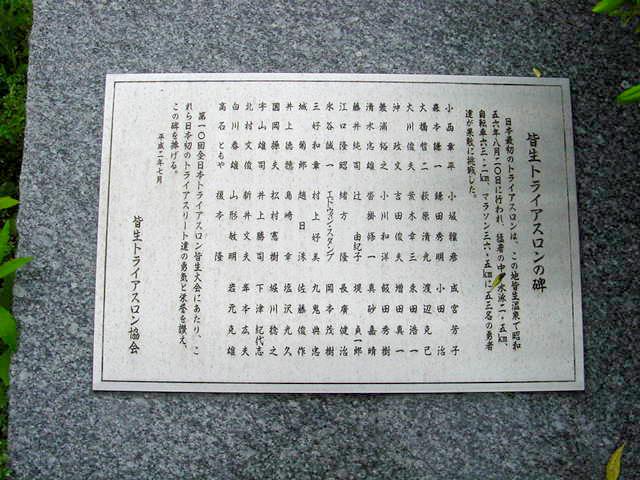 皆生トライアスロンの碑
日本最初のトライアスロンは、この地皆生温泉で昭和
五六年八月二〇日に行われ、猛暑の中、水泳二・五㎞、
自転車六三・二㎞、マラソン三六・五㎞に五三名の勇者
達が果敢に挑戦した。
小西章平 小坂雅彦 成宮芳子
森本謙一 鎌田秀明 小田治
大橋哲二 萩原清光 渡辺克己
大川俊夫 並木幸三 東田浩一
沖政文 吉田俊夫 増田真一
兼浦裕之 小川和洋 飯田秀樹
清水忠雄 皆掛修一 真砂嘉晴
藤井純司 辻由紀子 堤貞一郎
江口隆昭 緒方隆 長廣健治
永谷誠一 エドウィン・スタンプ 岡本茂樹
三好和章 村上好美 九鬼典忠
城菊郎 趙日洙 佐藤俊作
井上徳穂 島崎幸 塩沢光久
國岡操夫 松村憲樹 堀川稔之
宇山雄司 井上勝司 下津紀代志
北村文俊 新井文夫 年本広夫
白川春雄 山形敏明 岩元克雄
高石ともや 榎本隆
第一〇回全日本トライアスロン皆生大会にあたり、こ
れら日本初のトライアスリート達の勇気と栄誉を讃え、
この碑を捧げる。
平成二年七月
皆生トライアスロン協会